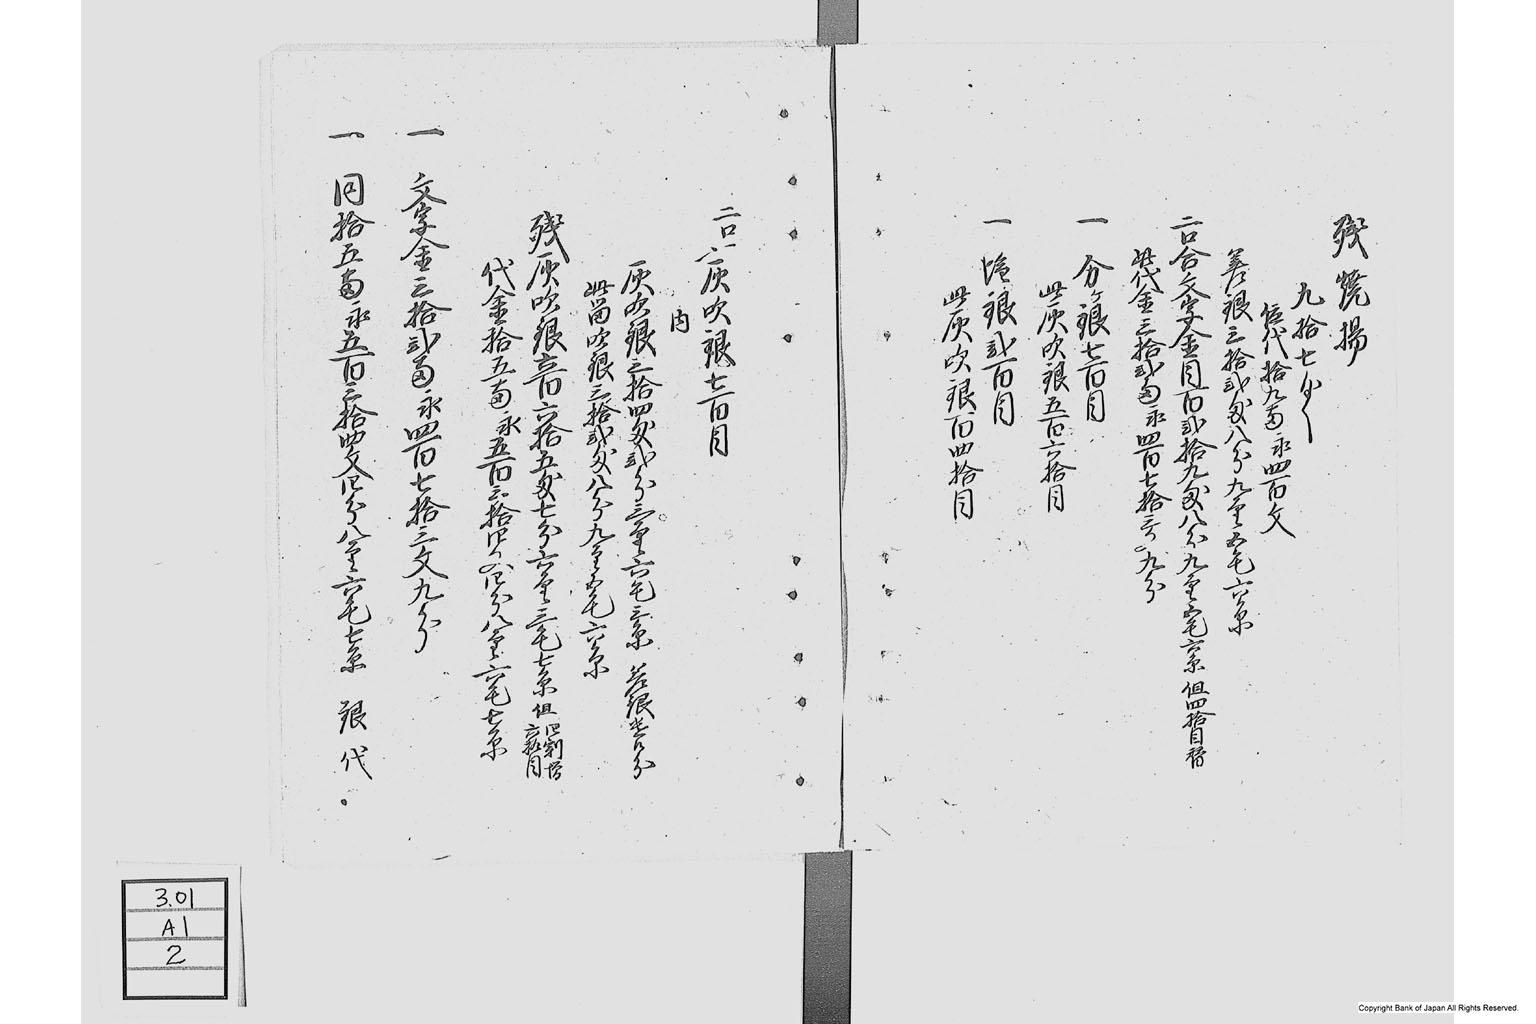 残焼揚
九拾七匁
位代拾九両永四百文
差銀三拾弐匁八分九厘五毛六糸
二口合文字金目百弐拾九匁八分九厘五毛六糸 但四拾目替
此代金三拾弐両永四百七拾三文九分
一 分ヶ銀七百目
此灰吹銀五百六拾目
一 塩銀弐百目
此灰吹銀百四拾目
二口〆灰吹銀七百目
内
灰吹銀三拾四匁弐分三厘六毛三糸 差銀
此留吹銀三拾弐匁八分九厘五毛六糸
残灰吹銀六百六拾五匁七分六厘三毛七糸 但
四割増
六拾目
代金拾五両永五百三拾四文四分八厘六毛七糸
一 文字金三拾弐両永四百七拾三文九分
一 同拾五両永五百三拾四文四分八厘六毛七糸 銀代
3.01
A1
2
Copyright Bank of Japan All Rights Reserved.